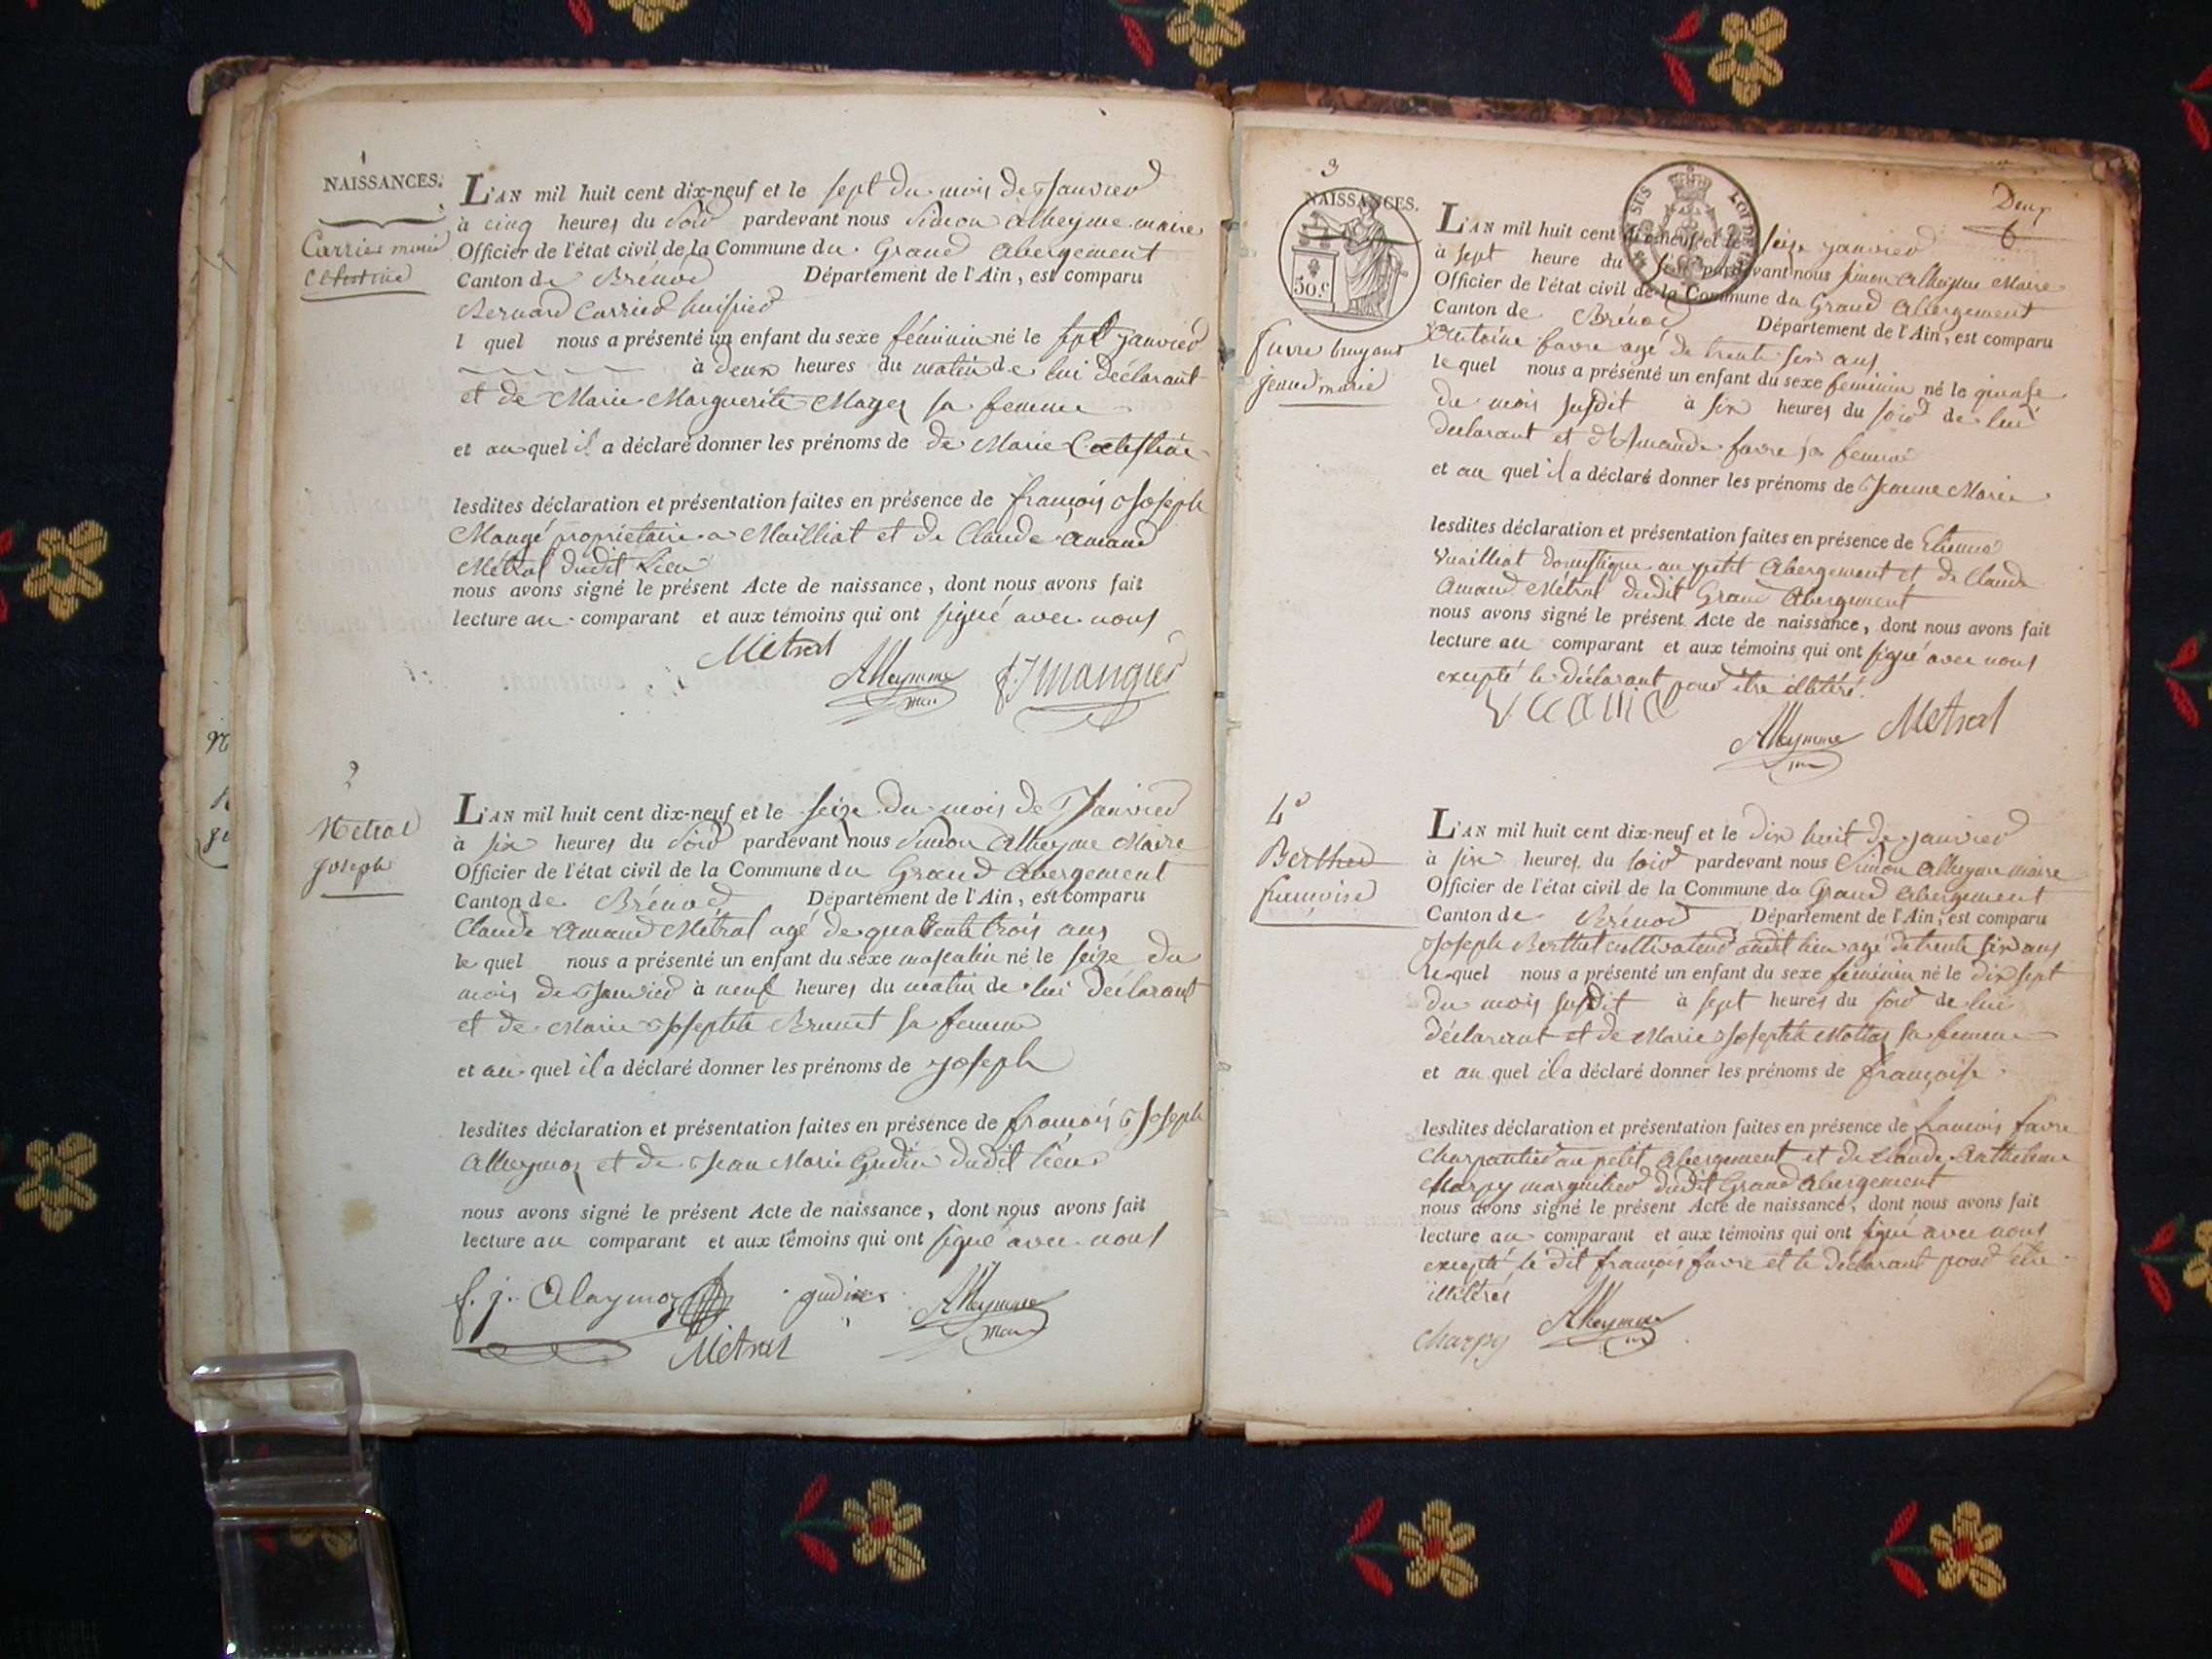 1
NAISSANCES.
Carrier marie
Célestine
L'AN mil huit cent dix-neuf et le sept du mois de Janvier
à cinq heures du Soir pardevant nous Simon Alleyme maire
Officier de l'état civil de la Commune du Grand Abergement
Canton de Brénod Département de l'Ain, est comparu
Bernard Carrier huissier
l quel nous a présenté un enfant du sexe féminin né le sept janvier
à deux heures du matin de lui déclarant
et de Marie Marguerite sa femme
et au quel il a déclaré donner les prénoms de de Marie Celestine
lesdites déclaration et présentation faites en présence de françois Joseph
Mangé propriétaire a Mailliat et de Claude Amand
Métral dudit Lieu
nous avons signé le présent Acte de naissance, dont nous avons fait
lecture au comparant et aux témoins qui ont signé avec nous
Métral
Alleyme F. J mangier
maire
2
Métral
joseph
L'AN mil huit cent dix-neuf et le seize du mois de Janvier
à six heures du Soir pardevant nous Simon Alleyme Maire
Officier de l'état civil de la Commune du Grand Abergement
Canton de Brénod Département de l'Ain, est comparu
Claude Amand Métral agé de quarente trois ans
le quel nous a présenté un enfant du sexe masculin né le seize du
mois de Janvier à neuf heures du matin de lui déclarant
et de Marie Josephte Brunet sa femme
et au quel il a déclaré donner les prénoms de joseph
lesdites déclaration et présentation faites en présence de françois Joseph
Alleymoz et de Jean Marie Gudin dudit lieu
nous avons signé le présent Acte de naissance, dont nous avons fait
lecture au comparant et aux témoins qui ont signé avec nous
f. j. Alaymoz gudin Alleyme
maire
Métral
3
NAISSANCES.
50.c
Deux
6
favre bruyant
jeanne marie
L'AN mil huit cent dix-neuf et le seize janvier
à sept heure du soir pardevant nous simon Alleyme Maire
Officier de l'état civil de la Commune du Grand Abergement
Canton de Brénod Département de l'Ain, est comparu
Antoine favre agé de trente six ans
le quel nous a présenté un enfant du sexe féminin né le quinse
du mois susdit à six heures du soir de lui
déclarant et d'Amande favre sa femme
et au quel il a déclaré donner les prénoms de Jeanne Marie
lesdites déclaration et présentation faites en présence de Etienne
Vuailliat domestique au petit Abergement et de Claude
Amand Métral dudit Grand Abergement
nous avons signé le présent Acte de naissance, dont nous avons fait
lecture au comparant et aux témoins qui ont signé avec nous
excepté le déclarant pour être illitéré.
Alleyme Métral
maire
4e
Berthet
françoise
L'AN mil huit cent dix-neuf et le dix huit de janvier
à six heures du soir pardevant nous Simon Alleyme maire
Officier de l'état civil de la Commune du Grand Abergement
Canton de Brénod Département de l'Ain, est comparu
Joseph Berthet cultivateur audit lieu agé de trente six ans
le quel nous a présenté un enfant du sexe féminin né le dix sept
du mois susdit à sept heures du soir de lui
déclarant et de Marie Josephte Mottaz sa femme
et au quel il a déclaré donner les prénoms de françoise
lesdites déclaration et présentation faites en présence de francois favre
charpentier au petit Abergement et de Claude Anthelme
Charpy marguilier dudit Grand Abergement
nous avons signé le présent Acte de naissance, dont nous avons fait
lecture au comparant et aux témoins qui ont signé avec nous
excepté le dit françois favre et le déclarant pour être
illitérés
Charpy Alleyme